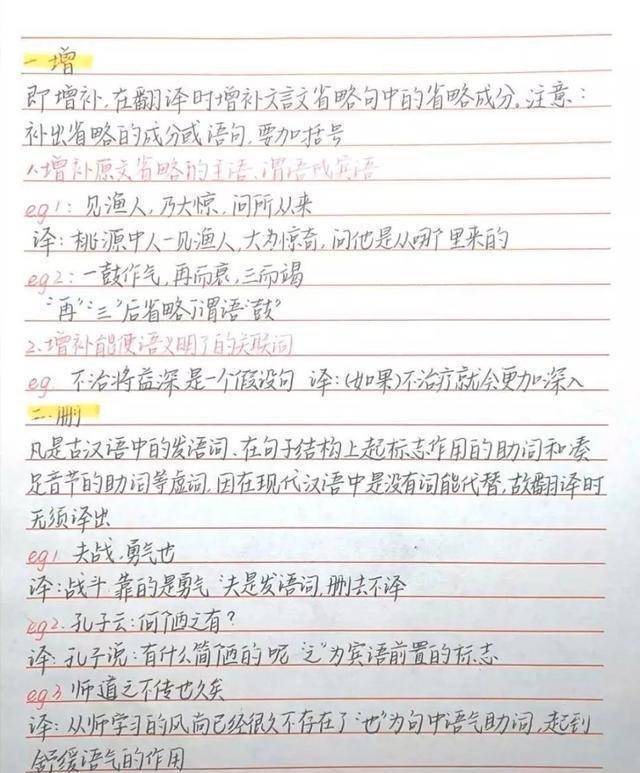 一增
即增补,在翻译时增补文言文省略句中的省略成分.注意:
补出省略的成分或语句,要加括号
1.增补原文省略的主语、谓语或宾语
eg1:见渔人,乃大惊,问所从来
译:桃源中人一见渔人,大为惊奇,问他是从哪个里来的
eg2:一鼓作气,再而衰,三而竭
“再”“三”后省略了谓语“鼓”
2.增补能使语义明了的关联词
eg. 不治将益深是一个假设句 译:(如果)不治疗就会更加深入
二.删
凡是古汉语中的发语词、在句子结构上起标志作用的助词和凑
足音节的助词等虚词,因在现代汉语中是没有词能代替,故翻译时
无须译出
eg1 夫战,勇气也
译:战斗 靠的是勇气 “夫”是发语词,删去不译
eg2.孔子云:何陋之有?
译:孔子说:有什么简陋的呢 “之”为宾语前置的标志
eg3 师道之不传也久矣
译:从师学习的风尚已经很久不存在了“也”为句中语气助词,起到
舒缓语气的作用